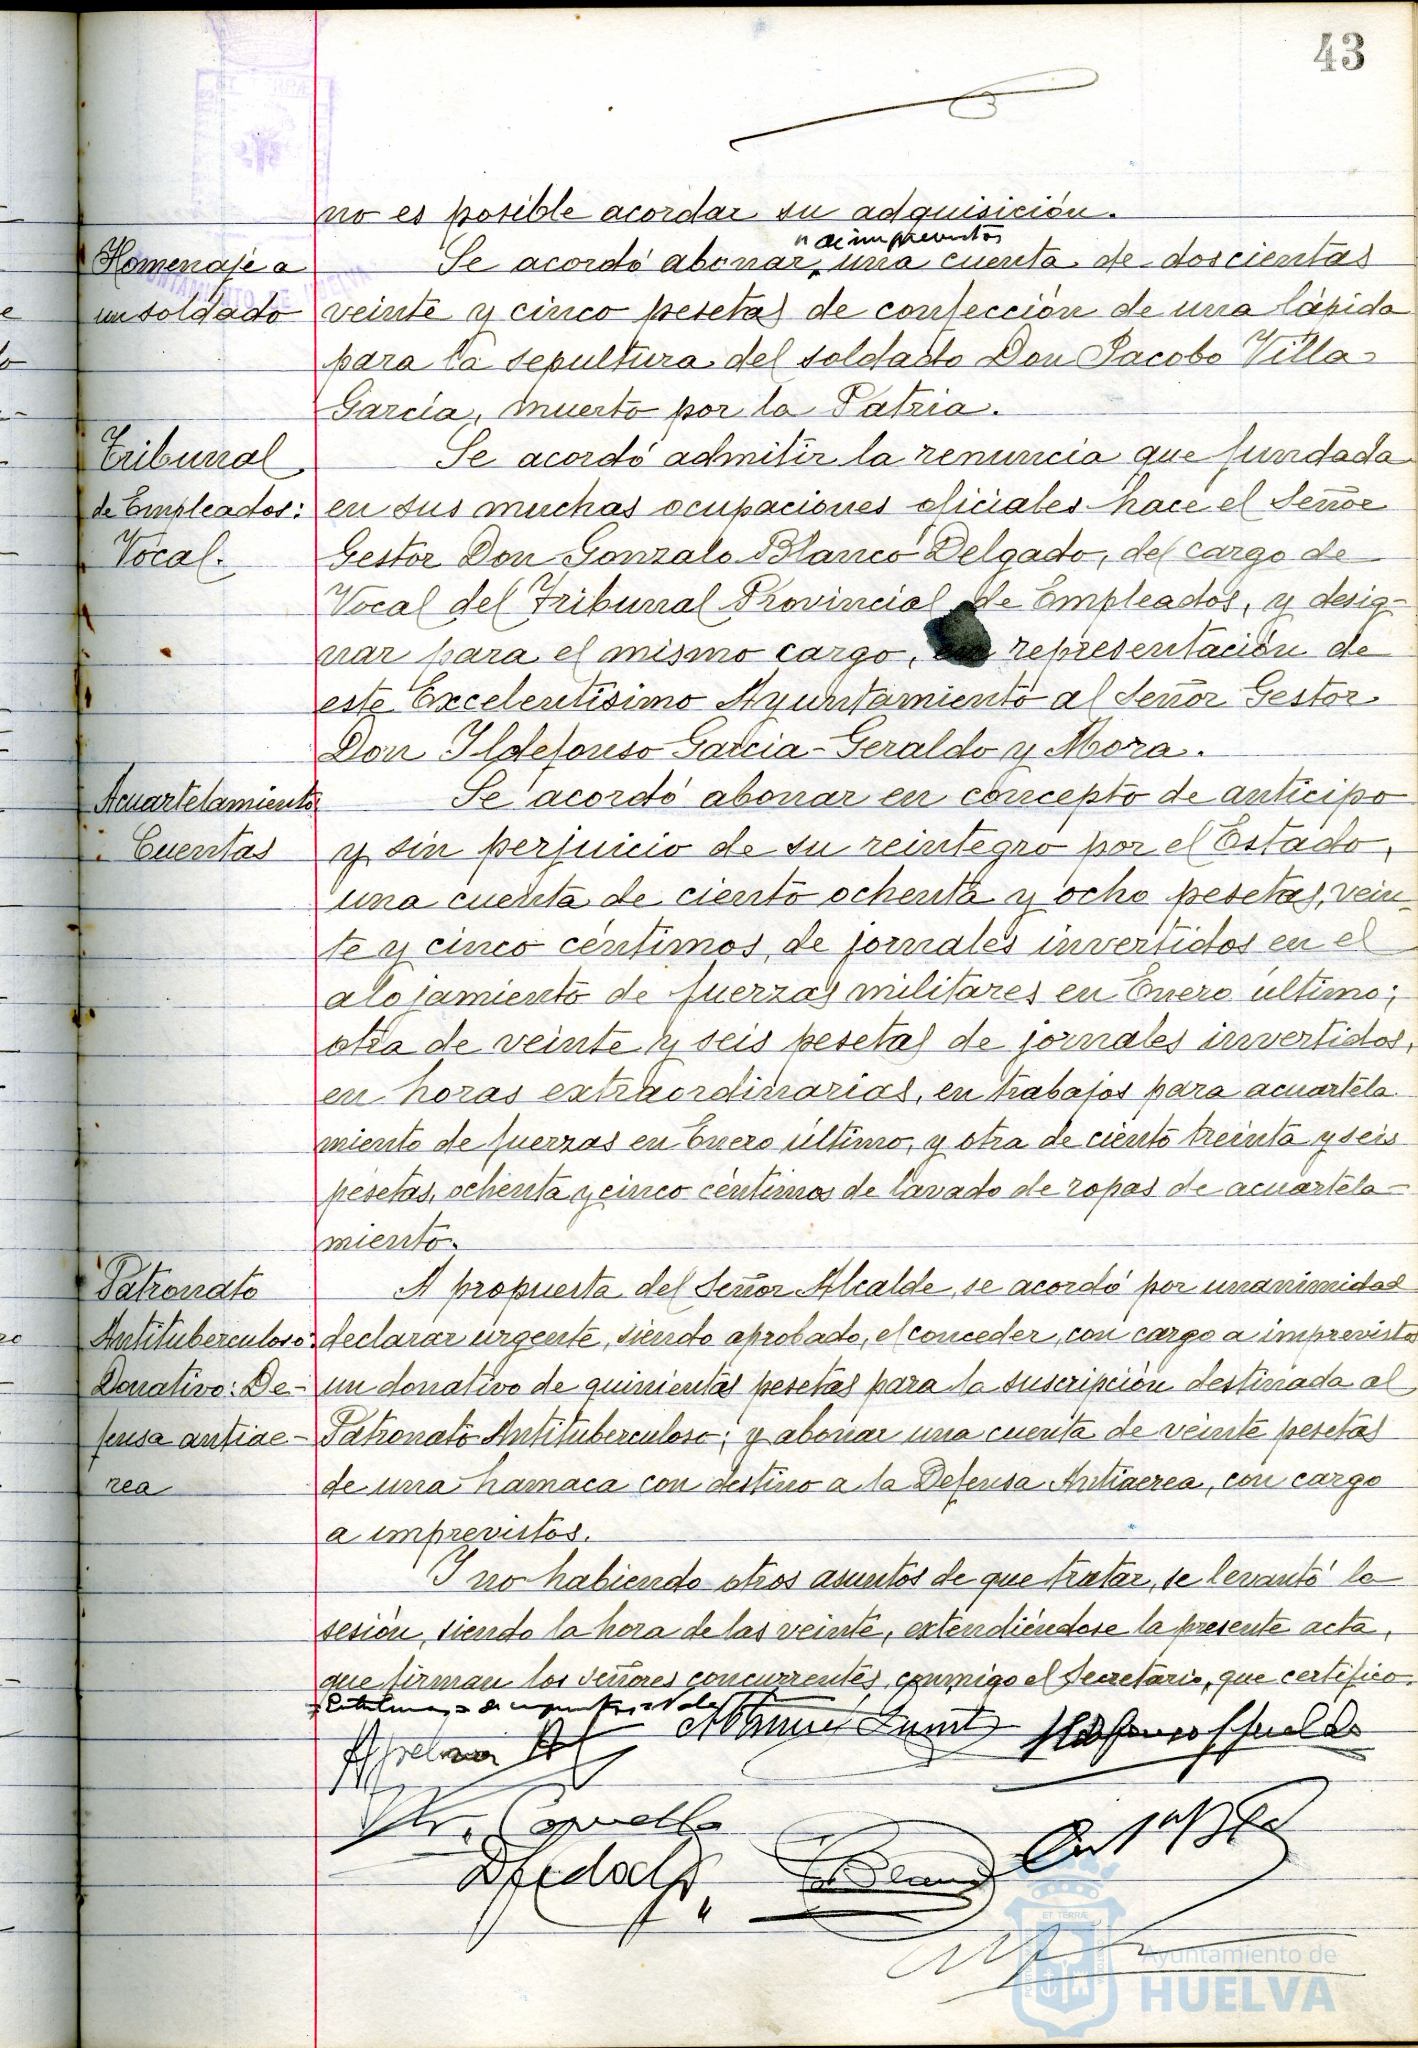 43
no es posible acordar su adquisición.
Homenaje a
un soldado
"de imprevistos
Se acordó abonar, una cuenta de doscientas
veinte y cinco pesetas de confección de una lápida
para la sepultura del soldado Don Jacobo Villa-
García, muerto por la Patria.
Tribunal
de Empleados:
Vocal.
Se acordó admitir la renuncia que fundada
en sus muchas ocupaciones oficiales hace el Señor
Gestor Don Gonzalo Blanco Delgado, del cargo de
Vocal del Tribunal Provincial de Empleados, y desig-
nar para el mismo cargo, en representación de
este Excelentísimo Ayuntamiento al Señor Gestor
Don Ildefonso García-Geraldo y Mora.
Acuartelamiento
: Cuentas
Se acordó abonar en concepto de anticipo
y sin perjuicio de su reintegro por el Estado,
una cuenta de ciento ochenta y ocho pesetas, vein-
te y cinco céntimos, de jornales invertidos en el
alojamiento de fuerzas militares en Enero último;
otra de veinte y seis pesetas de jornales invertidos,
en horas extraordinarias, en trabajos para acuartela
miento de fuerzas en Enero último, y otra de ciento treinta y seis
pesetas, ochenta y cinco céntimos de lavado de ropas de acuartela-
miento.
Patronato
Antituberculoso:
Donativo: De-
fensa antiae-
rea
A propuesta del Señor Alcalde, se acordó por unanimidad
declarar urgente, siendo aprobado, el conceder, con cargo a imprevistos
un donativo de quinientas pesetas para la suscripción destinada al
Patronato Antituberculoso; y abonar una cuenta de veinte pesetas
de una hamaca con destino a la Defensa Antiaerea, con cargo
a imprevistos.
Y no habiendo otros asuntos de que tratar, se levantó la
sesión, siendo la hora de las veinte, extendiéndose la presente acta,
que firman los señores concurrentes, conmigo el Secretario, que certifico.
Ayuntamiento de
HUELVA